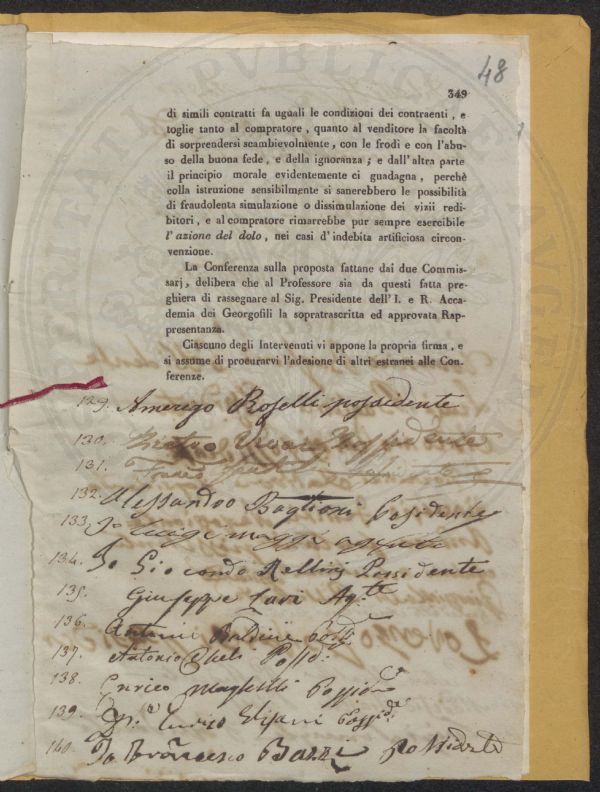 48
349
di simili contratti fa uguali le condizioni dei contraenti, e
toglie tanto al compratore, quanto al venditore la facoltà
di sorprendersi scambievolmente, con le frodi e con l'abu-
so della buona fede, e della ignoranza; e dall'altra parte
il principio morale evidentemente ci guadagna, perchè
colla istruzione sensibilmente si sanerebbero le possibilità
di fraudolenta simulazione o dissimulazione dei vizii redi-
bitori, e al compratore rimarrebbe pur sempre esercibile
l'azione del dolo, nei casi d'indebita artificiosa circon-
venzione.
La Conferenza sulla proposta fattane dai due Commis-
sarj, delibera che al Professore sia da questi fatta pre-
ghiera di rassegnare al Sig. Presidente dell'I. e R. Acca-
demia dei Georgofili la sopratrascritta ed approvata Rap-
presentanza.
Ciascuno degli Intervenuti vi appone la propria firma, e
si assume di procurarvi l'adesione di altri estranei alle Con-
ferenze.
129. Amerigo Roselli possidente
130. Possidente
131.
132. Alessandro Baglioni Posidente
133. Io Luigi Maggi
134. Io Giocondo Rellini Possidente
135. Giuseppe Lari Ag.te
136. Antonio Baldini
137. Antonio Possd.
138. Enrico Possid
139. Enrico Possid.
140. Io Francesco Bazzi Possidente